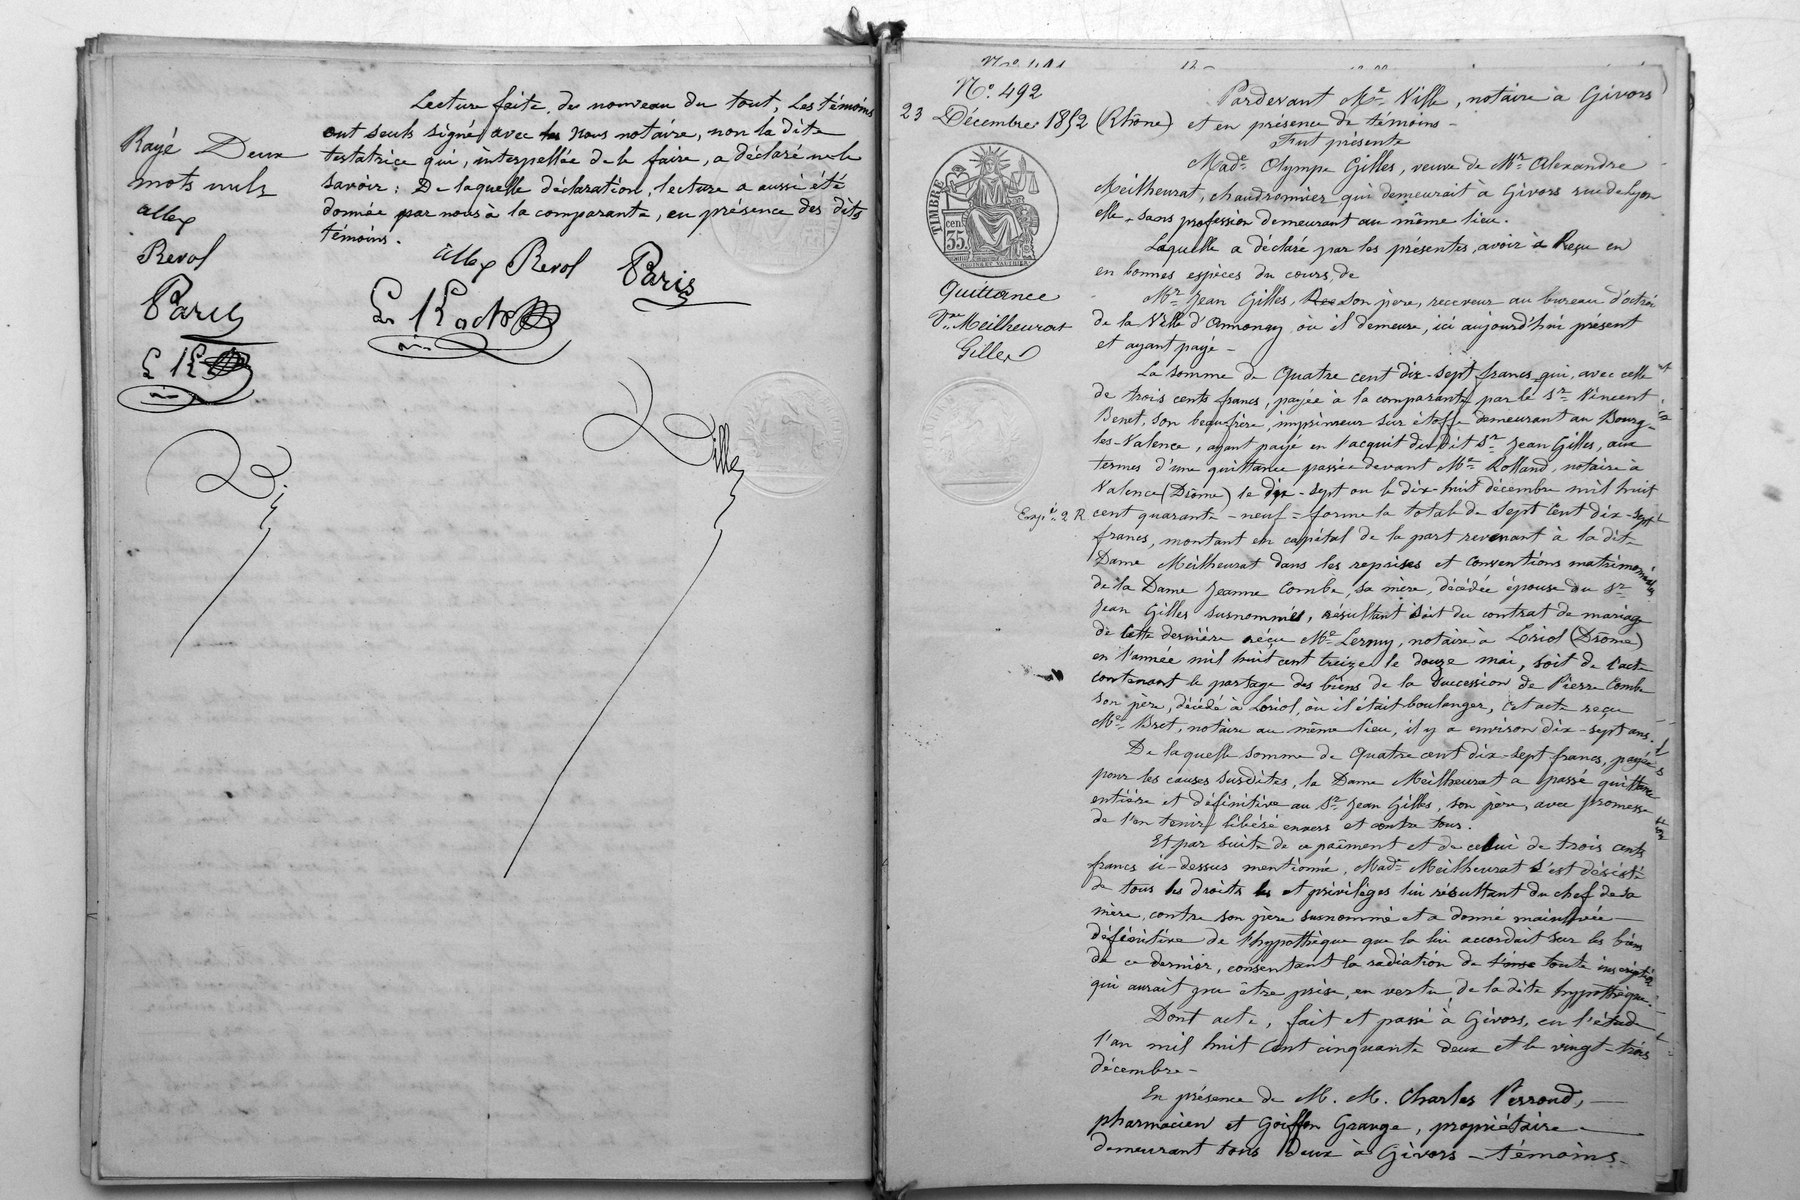 Lecture faite, de nouveau du tout, Les témoins
ont seuls signé avec les nous notaire, non la dite
testatrice qui, interpellée de le faire, a déclaré ne le
savoir : De laquelle déclaration, lecture a aussi été
donnée par nous à la comparante, en présence des dits
témoins.
Rayé Deux
mots nuls
allex
Revol
Paris
allex Revol Paris
N° 492
23 Décembre 1852
TIMBRE
35 cent
Quittance
Vve Meilheurat
Gilles
Pardevant Me Ville, notaire à Givors
(Rhône) et en présence de témoins -
Fut présente
Made Olympe Gilles, veuve de Mr Alexandre
Meilheurat, chaudronnier, qui demeurait à Givors rue de Lyon
elle, sans profession demeurant au même lieu.
Laquelle a déclaré par les présentes, avoir à Reçu en
en bonnes espèces du cours, de
Mr Jean Gilles, Rec son père, receveur au bureau d'octroi
de la Ville d'Annonay, où il demeure, ici aujourd'hui présent
et ayant payé -
La somme de Quatre cent dix-sept francs, qui, avec celle
de trois cents francs, payée à la comparante par le Sr Vincent
Benet, son beau-frère, imprimeur sur étoffe demeurant au Bourg-
les-Valence, ayant payé en l'acquit du dit Sr Jean Gilles, aux
termes d'une quittance passée devant Me Rolland, notaire à
Valence (Drôme) le dix-sept ou le dix-huit décembre mil huit
cent quarante-neuf = forme le total de Sept Cent dix-sept
francs, montant en capital de la part revenant à la dite
Dame Meilheurat dans les reprises et conventions matrimoniales
de la Dame Jeanne Combe, sa mère, décédée épouse du Sr
Jean Gilles susnommé, résultant soit du contrat de mariage
de cette dernière reçu Me Leroy, notaire à Loriol (Drôme)
en l'année mil huit cent treize le douze mai, soit de l'acte
contenant le partage des biens de la succession de Pierre Combe
son père, décédé à Loriol, où il était boulanger, cet acte reçu
Me Bret, notaire au même lieu, il y a environ dix-sept ans.
De laquelle somme de Quatre cent dix-sept francs, payée
pour les causes susdites, la Dame Meilheurat a passé quittance
entière et définitive au Sr Jean Gilles, son père, avec promesse
de l'en tenir libéré envers et contre tous.
Et par suite de ce paiment et de celui de trois cents
francs ci-dessus mentionné, Made Meilheurat s'est désisté
de tous les droits les et privilèges lui résultant du chef de sa
mère, contre son père susnommé et a donné mainlevée
définitive de l'hypothèque que la loi accordait sur les biens
de ce dernier, consentant la radiation de l'insc toute inscription
qui aurait pu être prise, en vertu de la dite hypothèque.
Dont acte, fait et passé à Givors, en l'étude
l'an mil huit cent cinquante deux et le vingt-trois
décembre -
En présence de M. M. Charles Perrond,
pharmacien et Goiffon Grange, propriétaire
demeurant tous deux à Givors - témoins -